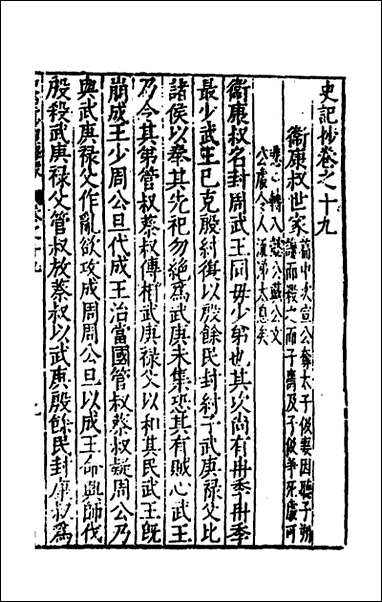 史記抄卷之十九
衛康叔世家
篇中次宣公奪太子伋妻因聽子朔
讒而殺之而子壽及子伋爭死處可
悲心轉入懿公戴公文
公處令人涕太息矣
衛康叔名封周武王同毋少弟也其次尚有冉季冉季
最少武王已克殷紂復以殷餘民封紂子武庚祿父比
諸侯以奉其先祀勿絶爲武庚未集恐其有賊心武王
乃令其弟管叔蔡叔傅相武庚祿父以和其民武王旣
崩成王少周公旦代成王治當國管叔蔡叔疑周公乃
與武庚祿父作亂欲攻成周周公旦以成王命興師伐
殷殺武庚祿父管叔放蔡叔以武庚殷餘民封康叔爲